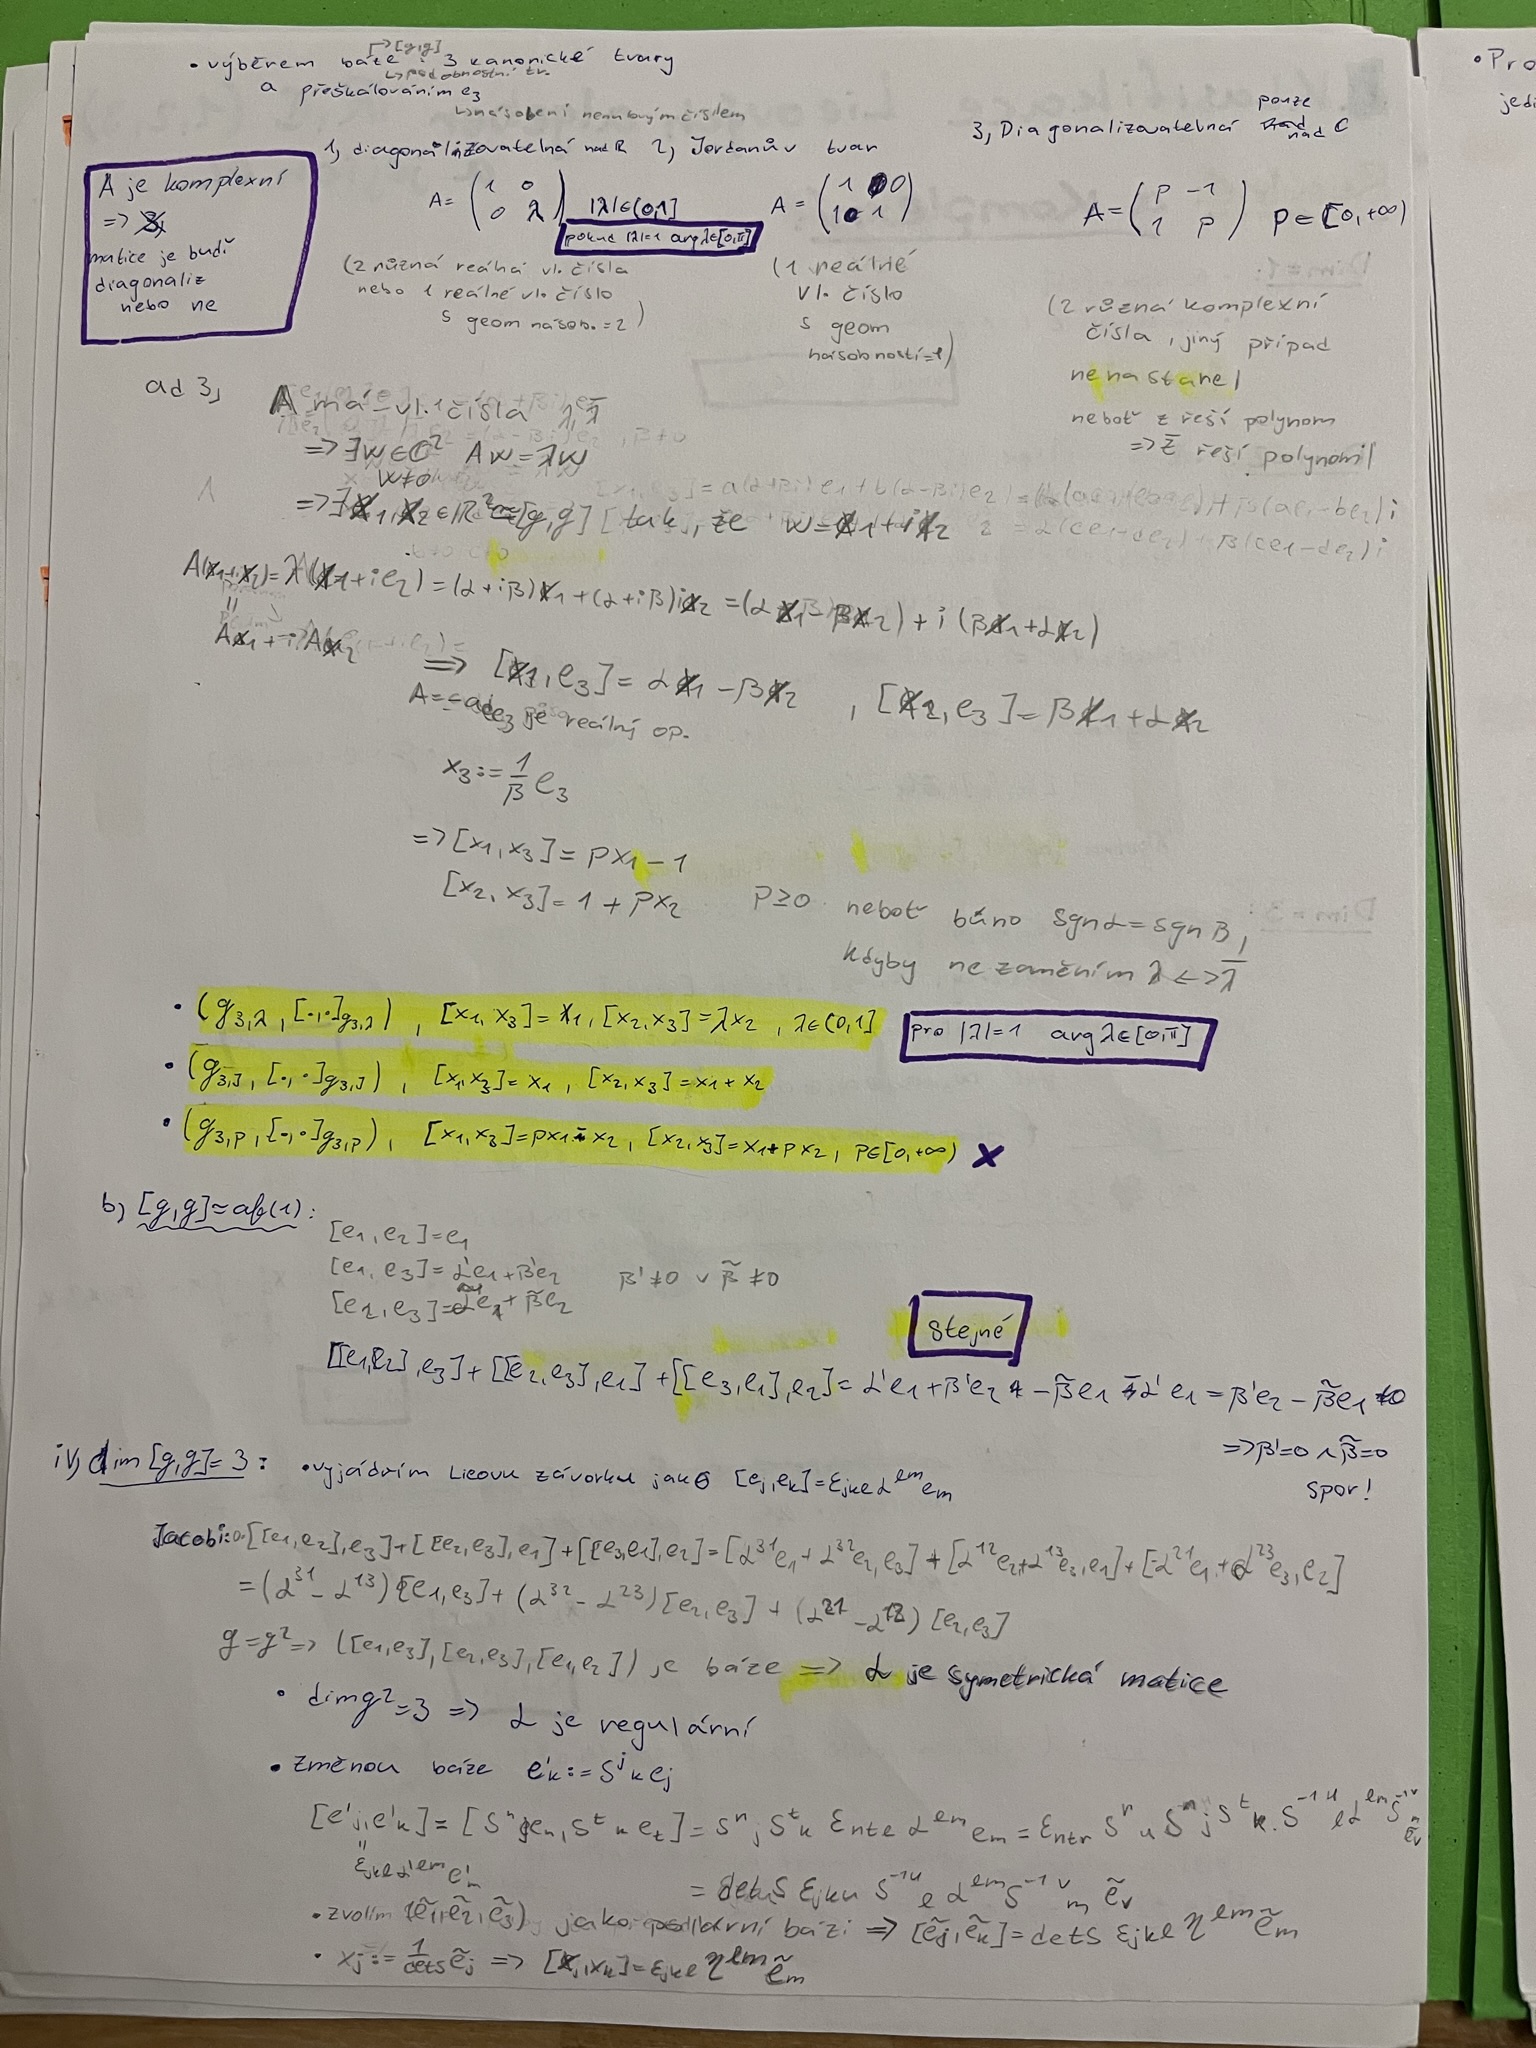 • výběrem báze i 3 kanonické tvary
↳[g,g]
↳podobnostní tr.
a přeškálováním e₃
↳násobení nenulovým číslem
1, diagonalizovatelná nad ℝ 2, Jordanův tvar
3, Diagonalizovatelná pouze nad ℂ
A je komplexní
=>
matice je buď
diagonaliz
nebo ne
A = (1 0
0 λ) |λ|∈(0,1]
pokud |λ|=1 arg λ∈[0,π]
A = (1 0
1 1)
A = (p -1
1 p) p∈[0,+∞)
(2 různá reálná vl. čísla
nebo 1 reálné vl. číslo
s geom násob. = 2)
(1 reálné
vl. číslo
s geom
násobností=1)
(2 různá komplexní
čísla, jiný případ
nenastane)
neboť z řeší polynom
=> z̄ řeší polynom)
ad 3, A má vl. čísla λ, λ̄
=> ∃w∈ℂ² Aw=λw
w≠0
=> ∃x₁, x₂∈ℝ²≃[g,g] tak, že w=x₁+ix₂
A(x₁+x₂)=λ(x₁+ie₂)=(α+iβ)x₁+(α+iβ)ix₂=(αx₁-βx₂)+i(βx₁+αx₂)
=
Ax₁+iAx₂
=> [x₁,e₃]=αx₁-βx₂, [x₂,e₃]=βx₁+αx₂
A=-ad e₃ je reálný op.
x₃:=1/β e₃
=> [x₁,x₃]=px₁-1
[x₂,x₃]=1+px₂ p≥0 neboť búno sgnα=sgnβ,
kdyby ne zaměním λ<->λ̄
• (g₃,λ, [·,·]g₃,λ), [x₁,x₃]=x₁, [x₂,x₃]=λx₂, λ∈(0,1]
pro |λ|=1 arg λ∈[0,π]
• (g₃,J, [·,·]g₃,J), [x₁,x₃]=x₁, [x₂,x₃]=x₁+x₂
• (g₃,p, [·,·]g₃,p), [x₁,x₃]=px₁-x₂, [x₂,x₃]=x₁+px₂, p∈[0,+∞) X
b) [g,g]≃af(1):
[e₁,e₂]=e₁
[e₁,e₃]=α'e₁+β'e₂ β'≠0 ∨ β̃≠0
[e₂,e₃]=α̃e₁+β̃e₂
stejné
[[e₁,e₂],e₃]+[[e₂,e₃],e₁]+[[e₃,e₁],e₂]=α'e₁+β'e₂-β̃e₁-α'e₁=β'e₂-β̃e₁≠0
=>β'=0∧β̃=0
spor!
iv) dim[g,g]=3: • vyjádřím Lieovu závorku jako [eⱼ,eₖ]=εⱼₖₗαˡᵐeₘ
Jacobi: 0=[[e₁,e₂],e₃]+[[e₂,e₃],e₁]+[[e₃,e₁],e₂]=[α³¹e₁+α³²e₂,e₃]+[α¹²e₂+α¹³e₃,e₁]+[α²¹e₁+α²³e₃,e₂]
=(α³¹-α¹³)[e₁,e₃]+(α³²-α²³)[e₂,e₃]+(α²¹-α¹²)[e₂,e₃]
g=g²=>([e₁,e₃],[e₂,e₃],[e₁,e₂]) je báze => α je symetrická matice
• dim g²=3 => α je regulární
• Změnou báze e'ₖ:=Sʲₖeⱼ
[e'ⱼ,e'ₖ]=[Sⁿⱼeₙ,Sᵗₖeₜ]=SⁿⱼSᵗₖεₙₜₗαˡᵐeₘ=εₙₜᵣSʳᵤSⁿⱼSᵗₖ S⁻¹ᵘₗαˡᵐS⁻¹ᵛₘẽᵥ
=
εⱼₖₗα'ˡᵐe'ₘ
=detS εⱼₖᵤ S⁻¹ᵘₗ αˡᵐ S⁻¹ᵛₘ ẽᵥ
• zvolím (ẽ₁,ẽ₂,ẽ₃) jako polární bázi => [ẽⱼ,ẽₖ]=detS εⱼₖₗηˡᵐẽₘ
• xⱼ:=1/detS ẽⱼ => [xⱼ,xₖ]=εⱼₖₗηˡᵐẽₘ
• Pro
jedi